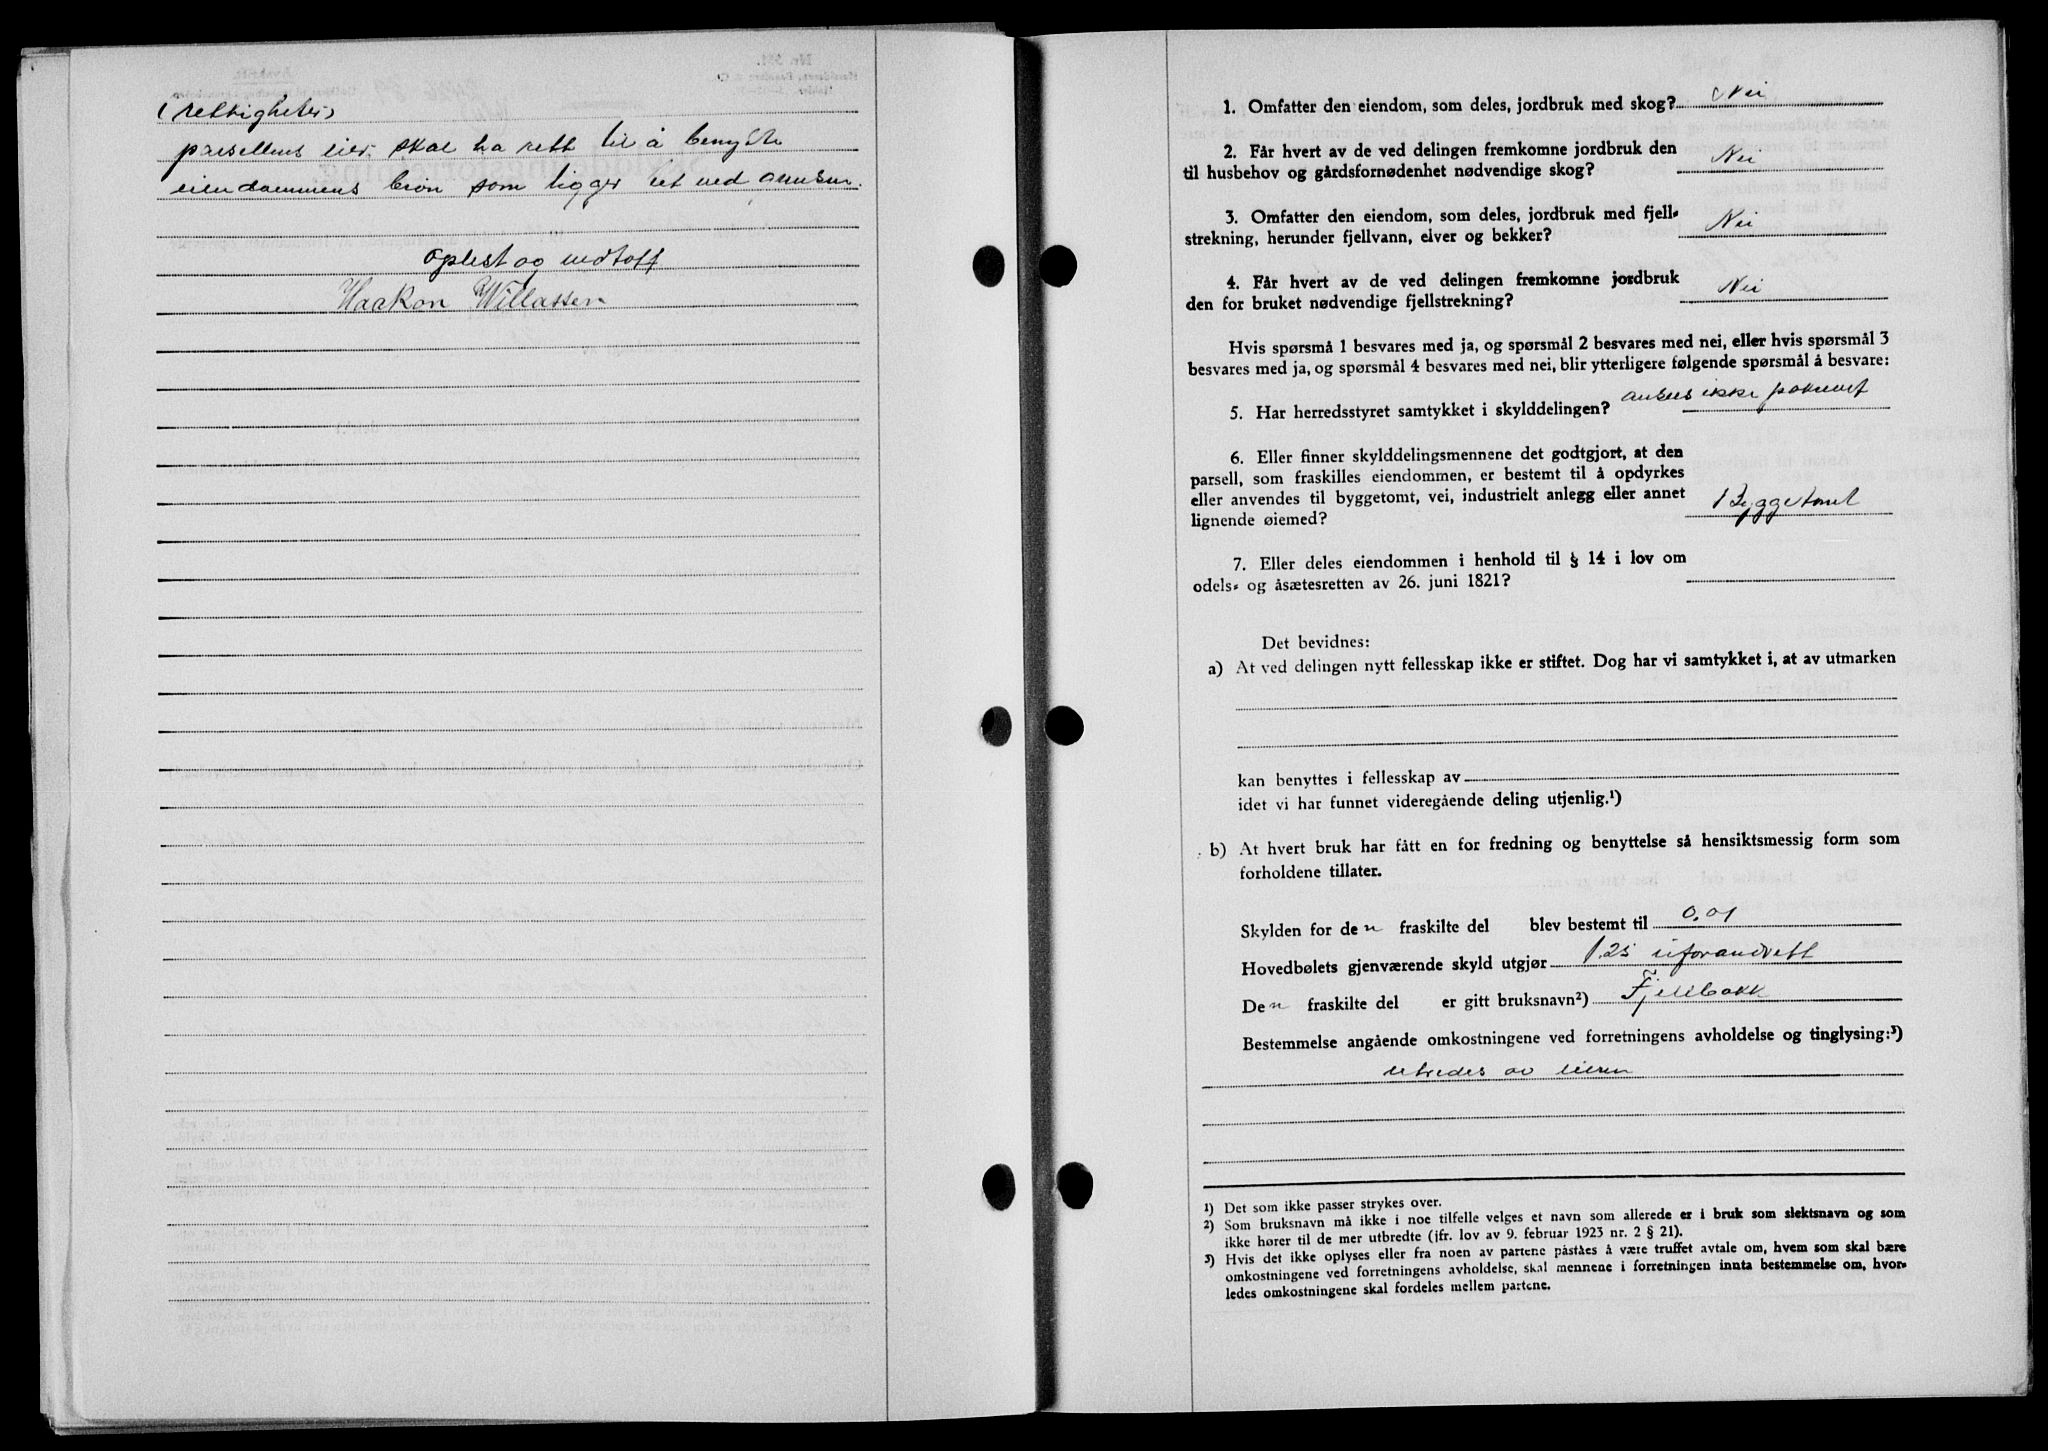 (rettigheter)
parsellens eier skal ha rett til å benytte
eiendommens brøn som ligger tet ved grensen.
oplest og vedtatt
Haakon Willassen
1. Omfatter den eiendom, som deles, jordbruk med skog? Nei
2. Får hvert av de ved delingen fremkomne jordbruk den
til husbehov og gårdsfornødenhet nødvendige skog? Nei
3. Omfatter den eiendom, som deles, jordbruk med fjell-
strekning, herunder fjellvann, elver og bekker? Nei
4. Får hvert av de ved delingen fremkomne jordbruk
den for bruket nødvendige fjellstrekning? Nei
Hvis spørsmå 1 besvares med ja, og spørsmål 2 besvares med nei, eller hvis spørsmål 3
besvares med ja, og spørsmål 4 besvares med nei, blir ytterligere følgende spørsmål å besvare:
5. Har herredsstyret samtykket i skylddelingen? ansees ikke påkrevet
6. Eller finner skylddelingsmennene det godtgjort, at den
parsell, som fraskilles eiendommen, er bestemt til å opdyrkes
eller anvendes til byggetomt, vei, industrielt anlegg eller annet
lignende øiemed? Byggetomt
7. Eller deles eiendommen i henhold til § 14 i lov om
odels- og åsætesretten av 26. juni 1821?
Det bevidnes:
a) At ved delingen nytt fellesskap ikke er stiftet. Dog har vi samtykket i, at av utmarken
kan benyttes i fellesskap av
idet vi har funnet videregående deling utjenlig.¹)
b) At hvert bruk har fått en for fredning og benyttelse så hensiktsmessig form som
forholdene tillater.
Skylden for den fraskilte del blev bestemt til 0,01
Hovedbølets gjenværende skyld utgjør 1.25 uforandrett
Den fraskilte del er gitt bruksnavn²) Fjellbakk
Bestemmelse angående omkostningene ved forretningens avholdelse og tinglysing:³)
utredes av eieren
¹) Det som ikke passer strykes over.
²) Som bruksnavn må ikke i noe tilfelle velges et navn som allerede er i bruk som slektsnavn og som
ikke hører til de mer utbredte (jfr. lov av 9. februar 1923 nr. 2 § 21).
³) Hvis det ikke oplyses eller fra noen av partene påståes å være truffet avtale om, hvem som skal bære
omkostningene ved forretningens avholdelse, skal mennene i forretningen innta bestemmelse om, hvor-
ledes omkostningene skal fordeles mellem partene.